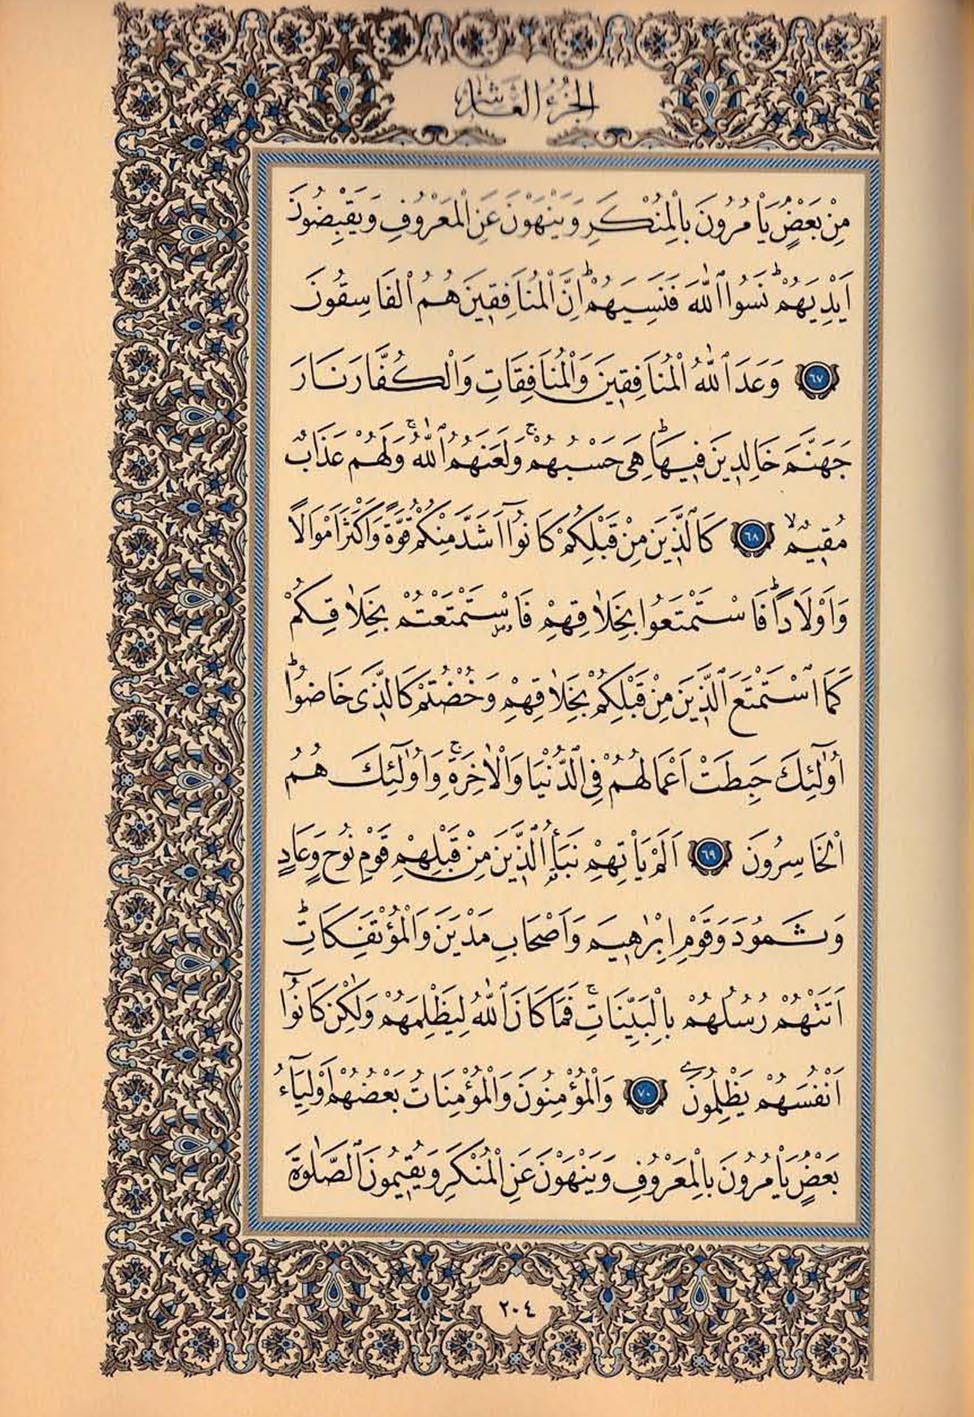 الجزء العاشر
مِنْ بَعْضٍۢ يَأْمُرُونَ بِالْمُنْكَرِ وَيَنْهَوْنَ عَنِ الْمَعْرُوفِ وَيَقْبِضُونَ
اَيْدِيَهُمْۜ نَسُوا اللّٰهَ فَنَسِيَهُمْۜ اِنَّ الْمُنَافِق۪ينَ هُمُ الْفَاسِقُونَ
﴿٦٧﴾ وَعَدَ اللّٰهُ الْمُنَافِق۪ينَ وَالْمُنَافِقَاتِ وَالْكُفَّارَ نَارَ
جَهَنَّمَ خَالِد۪ينَ ف۪يهَاۜ هِيَ حَسْبُهُمْۚ وَلَعَنَهُمُ اللّٰهُۚ وَلَهُمْ عَذَابٌ
مُق۪يمٌۙ ﴿٦٨﴾ كَالَّذ۪ينَ مِنْ قَبْلِكُمْ كَانُٓوا اَشَدَّ مِنْكُمْ قُوَّةً وَاَكْثَرَ اَمْوَالًا
وَاَوْلَادًاۜ فَاسْتَمْتَعُوا بِخَلَاقِهِمْ فَاسْتَمْتَعْتُمْ بِخَلَاقِكُمْ
كَمَا اسْتَمْتَعَ الَّذ۪ينَ مِنْ قَبْلِكُمْ بِخَلَاقِهِمْ وَخُضْتُمْ كَالَّذ۪ي خَاضُواۜ
اُو۬لٰٓئِكَ حَبِطَتْ اَعْمَالُهُمْ فِي الدُّنْيَا وَالْاٰخِرَةِۚ وَاُو۬لٰٓئِكَ هُمُ
الْخَاسِرُونَ ﴿٦٩﴾ اَلَمْ يَأْتِهِمْ نَبَأُ الَّذ۪ينَ مِنْ قَبْلِهِمْ قَوْمِ نُوحٍ وَعَادٍ
وَثَمُودَ وَقَوْمِ اِبْرٰه۪يمَ وَاَصْحَابِ مَدْيَنَ وَالْمُؤْتَفِكَاتِۜ
اَتَتْهُمْ رُسُلُهُمْ بِالْبَيِّنَاتِۚ فَمَا كَانَ اللّٰهُ لِيَظْلِمَهُمْ وَلٰكِنْ كَانُٓوا
اَنْفُسَهُمْ يَظْلِمُونَ ﴿٧٠﴾ وَالْمُؤْمِنُونَ وَالْمُؤْمِنَاتُ بَعْضُهُمْ اَوْلِيَٓاءُ
بَعْضٍۢ يَأْمُرُونَ بِالْمَعْرُوفِ وَيَنْهَوْنَ عَنِ الْمُنْكَرِ وَيُق۪يمُونَ الصَّلٰوةَ
٢٠٤